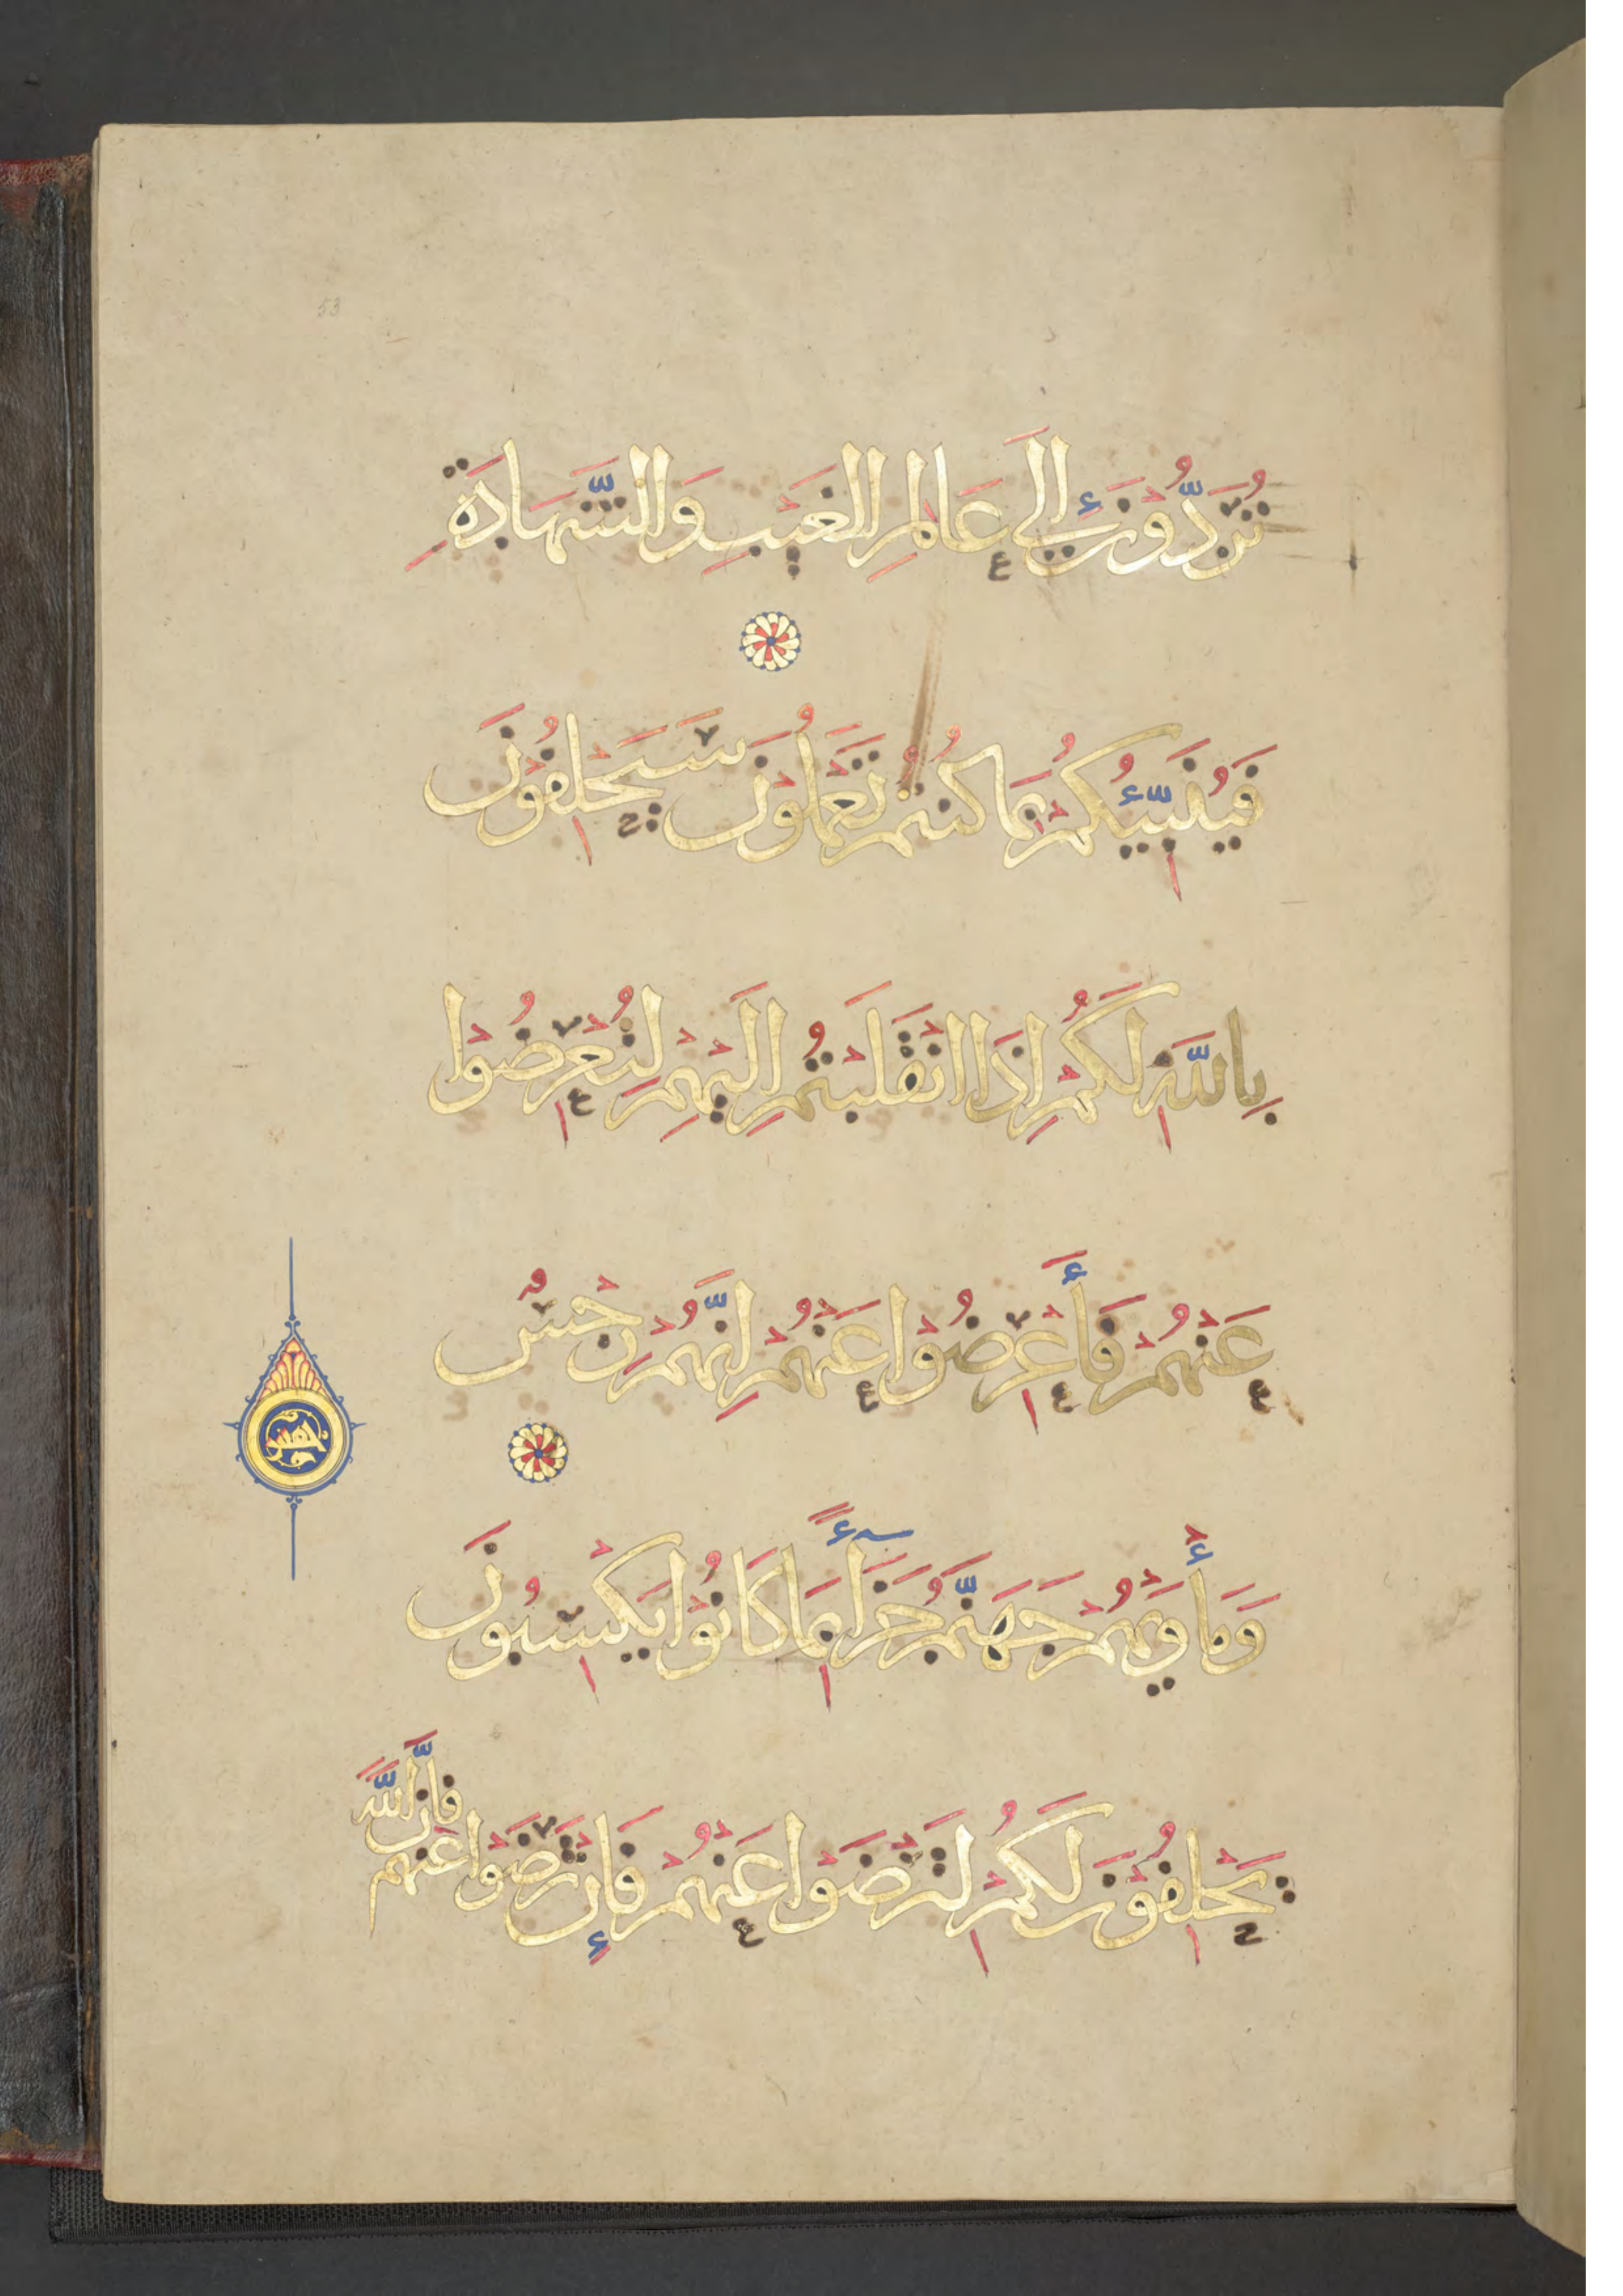 53
تُرَدُّونَ إِلَى عَالِمِ الْغَيْبِ وَالشَّهَادَةِ
فَيُنَبِّئُكُمْ بِمَا كُنْتُمْ تَعْمَلُونَ سَيَحْلِفُونَ
بِاللَّهِ لَكُمْ إِذَا انْقَلَبْتُمْ إِلَيْهِمْ لِتُعْرِضُوا
عَنْهُمْ فَأَعْرِضُوا عَنْهُمْ إِنَّهُمْ رِجْسٌ
وَمَأْوَيهُمْ جَهَنَّمُ جَزَآءً بِمَا كَانُوا يَكْسِبُونَ
يَحْلِفُونَ لَكُمْ لِتَرْضَوْا عَنْهُمْ فَإِنْ تَرْضَوْا عَنْهُمْ
فَإِنَّ اللَّهَ